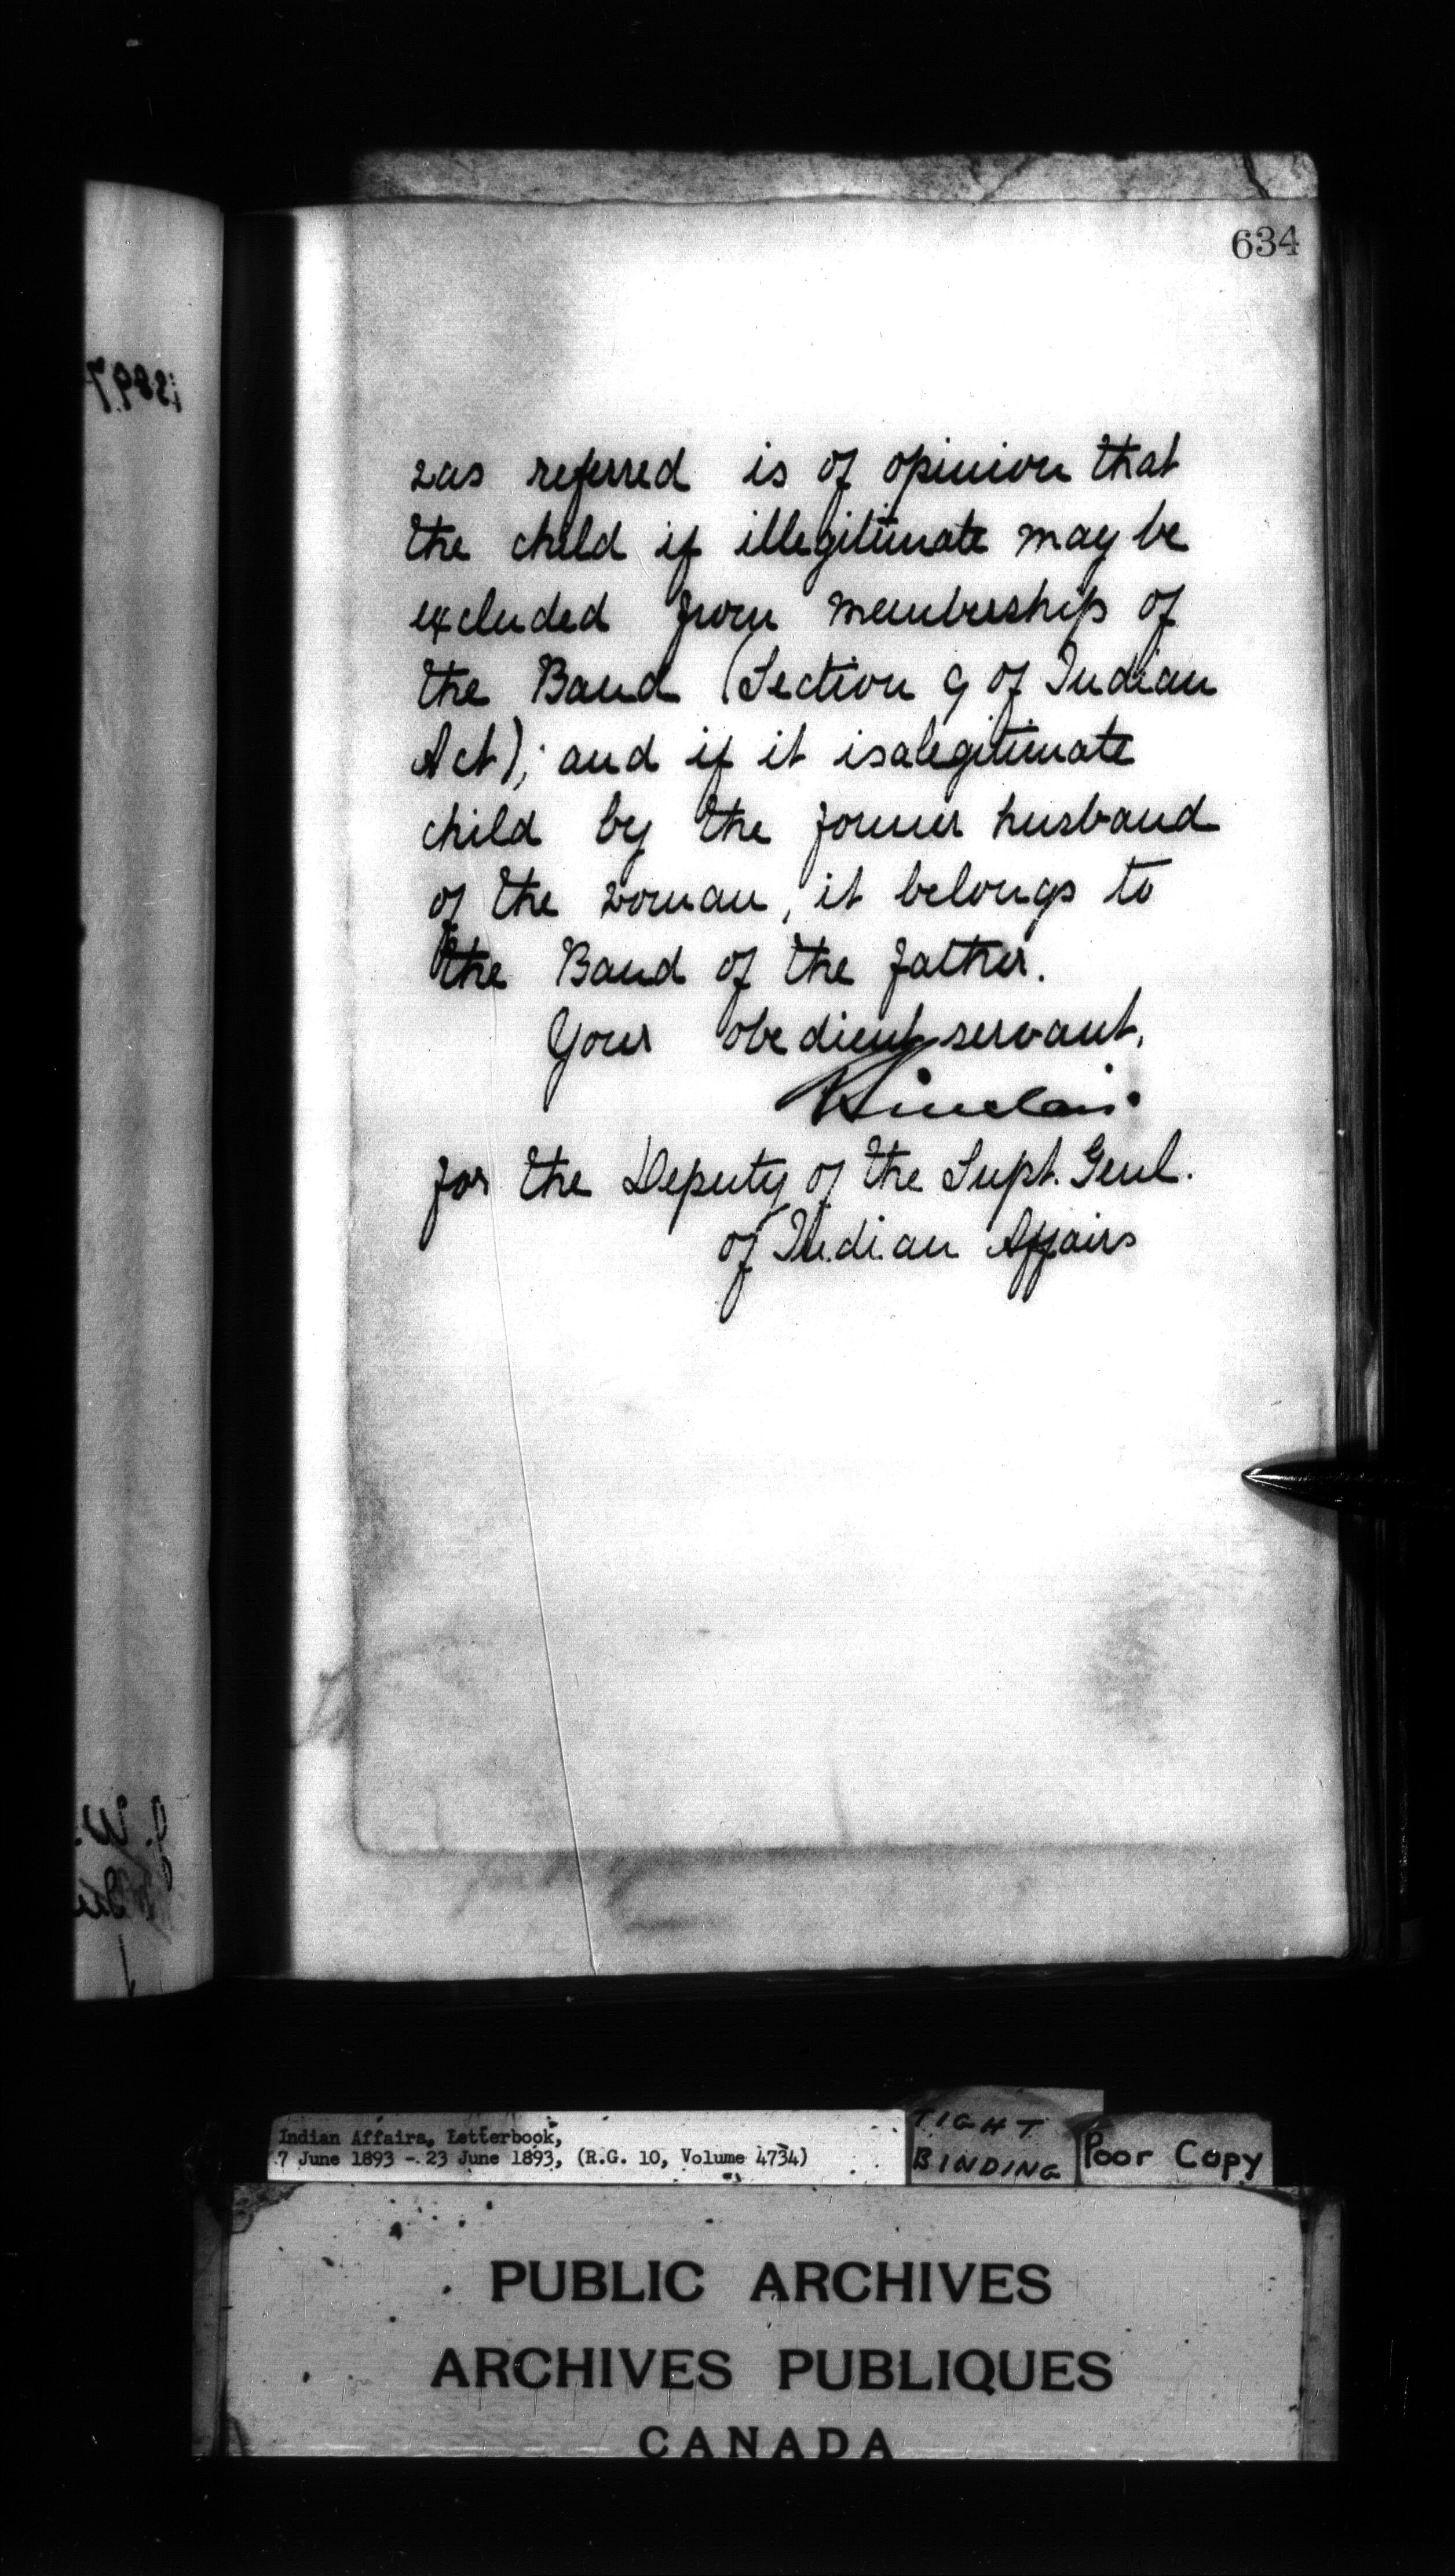 634
was referred is of opinion that
the child if illegitimate may be
excluded from membership of
the Band (Section 9 of Indian
Act); and if it is a legitimate
child by the former husband
of the woman, it belongs to
the Band of the father.
Your obedient servant,
Sinclair
for the Deputy of the Supt. Genl.
of Indian Affairs
Indian Affairs, Letterbook,
7 June 1893 - 23 June 1893, (R.G. 10, Volume 4734)
TIGHT
BINDING
Poor Copy
PUBLIC ARCHIVES
ARCHIVES PUBLIQUES
CANADA